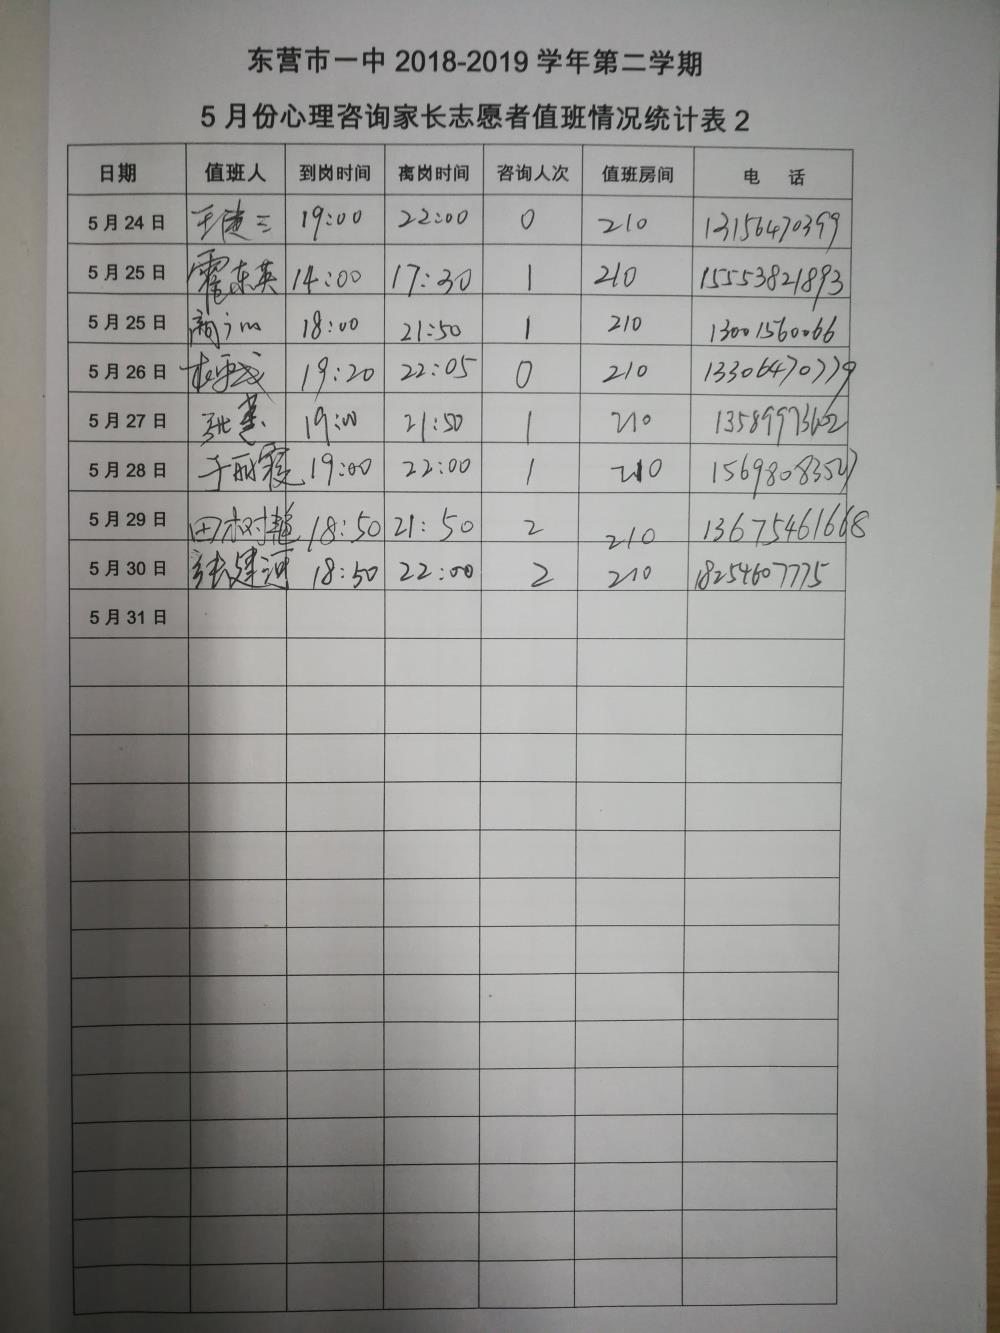 东营市一中 2018-2019 学年第二学期
5 月份心理咨询家长志愿者值班情况统计表 2
日期 值班人 到岗时间 离岗时间 咨询人次 值班房间 电 话
5 月 24 日 19:00 22:00 0 210 13156470399
5 月 25 日 霍东英 14:00 17:30 1 210 15553821893
5 月 25 日 18:00 21:50 1 210 13001560066
5 月 26 日 19:20 22:05 0 210 13306470779
5 月 27 日 张慧 19:00 21:50 1 210
5 月 28 日 于丽霞 19:00 22:00 1 210
5 月 29 日 田树艳 18:50 21:50 2 210 13675461668
5 月 30 日 张建河 18:50 22:00 2 210 18254607775
5 月 31 日